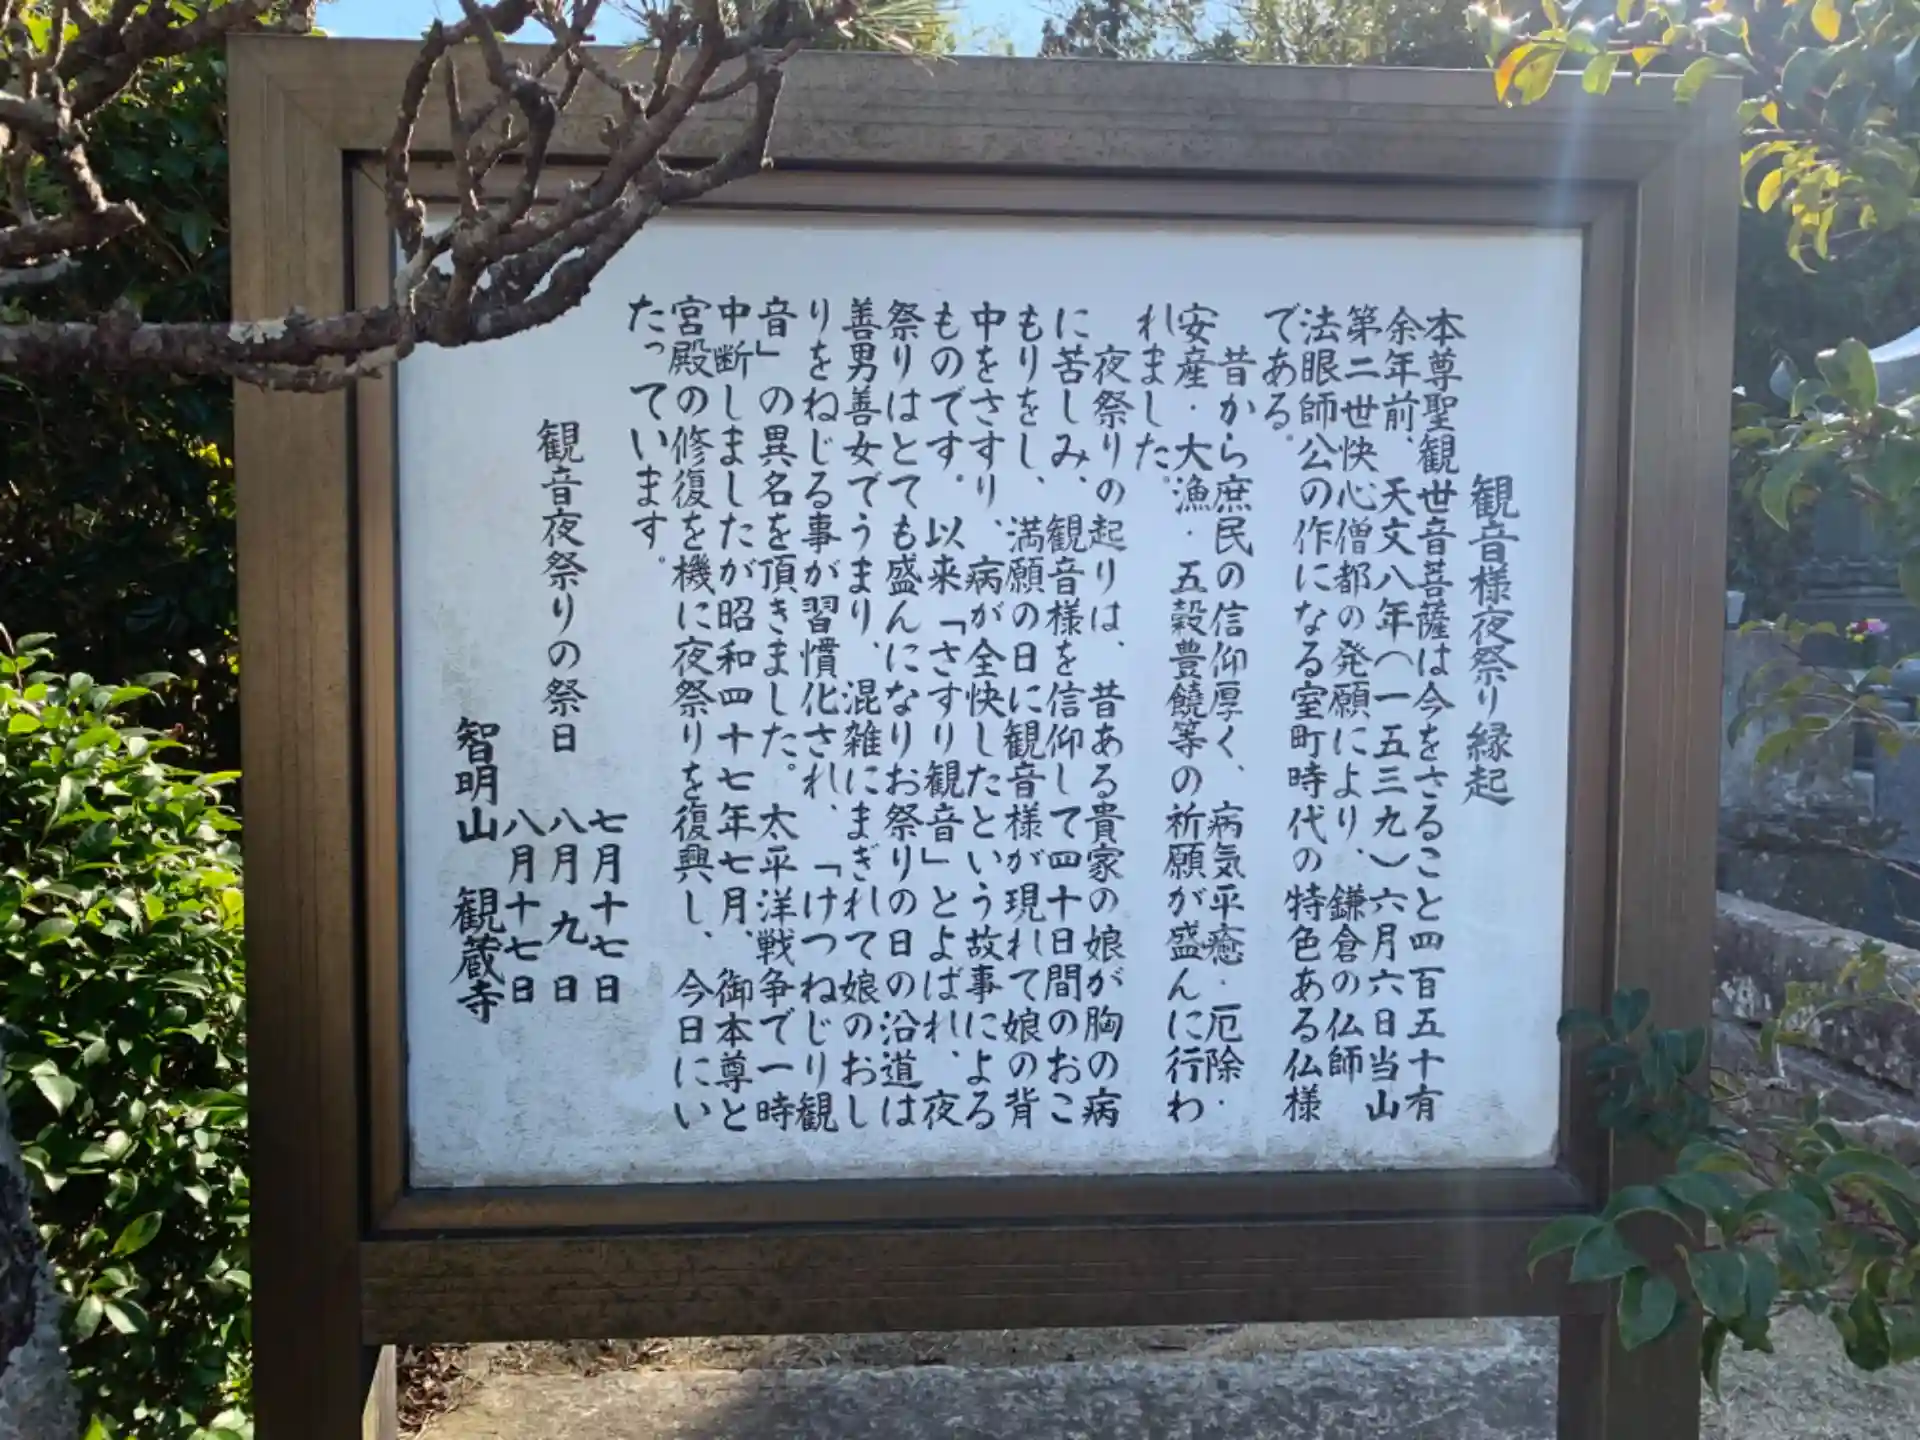 観音様夜祭り縁起
本尊聖観世音菩薩は今をさること四百五十有
余年前、天文八年(一五三九)六月六日当山
第二世快心僧都の発願により、鎌倉の仏師
法眼師公の作になる室町時代の特色ある仏様
である。
昔から庶民の信仰厚く、病気平癒・厄除・
安産・大漁・五穀豊饒等の祈願が盛んに行わ
れました。
夜祭りの起りは、昔ある貴家の娘が胸の病
に苦しみ、観音様を信仰して四十日間のおこ
もりをし、満願の日に観音様が現れて娘の背
中をさすり、病が全快したという故事による
ものです。以来「さすり観音」とよばれ、夜
祭りはとても盛んになりお祭りの日の沿道は
善男善女でうまり、混雑にまぎれて娘のおし
りをねじる事が習慣化され、「けつねじり観
音」の異名を頂きました。太平洋戦争で一時
中断しましたが昭和四十七年七月、御本尊と
宮殿の修復を機に夜祭りを復興し、今日にい
たっています。
観音夜祭りの祭日
七月十七日
八月九日
八月十七日
智明山 観蔵寺